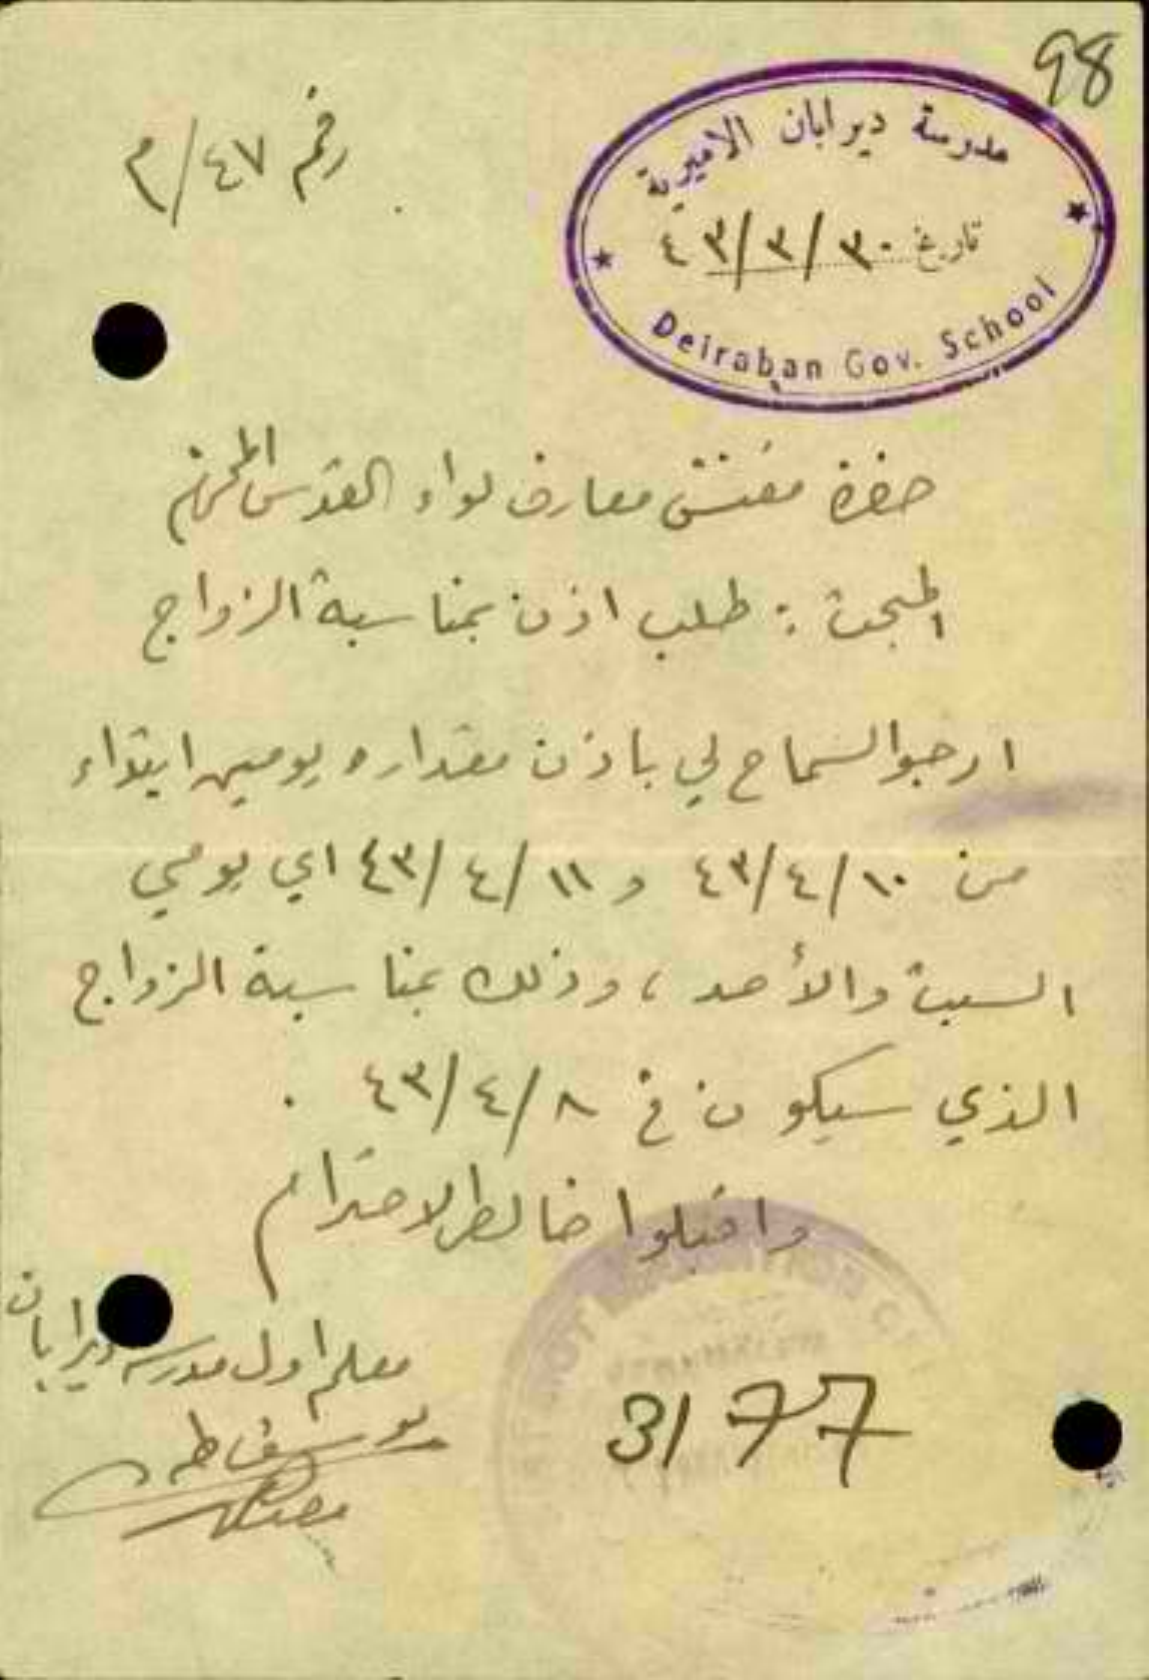 98
مدرسة ديرابان الاميرية
تاريخ ٣٠/٣/٤٣
Deiraban Gov. School
رقم ٤٧/م
حضرة مفتش معارف لواء القدس المحترم
المبحث : طلب اذن بمناسبة الزواج
ارجو السماح لي باذن مقداره يومين ابتداء
من ١٠/٤/٤٣ و ١١/٤/٤٣ اي يومي
السبت والأحد ، وذلك بمناسبة الزواج
الذي سيكون في ٨/٤/٤٣ .
واقبلوا خالص الاحترام
معلم اول مدرسة ديرابان
يوسف
3177